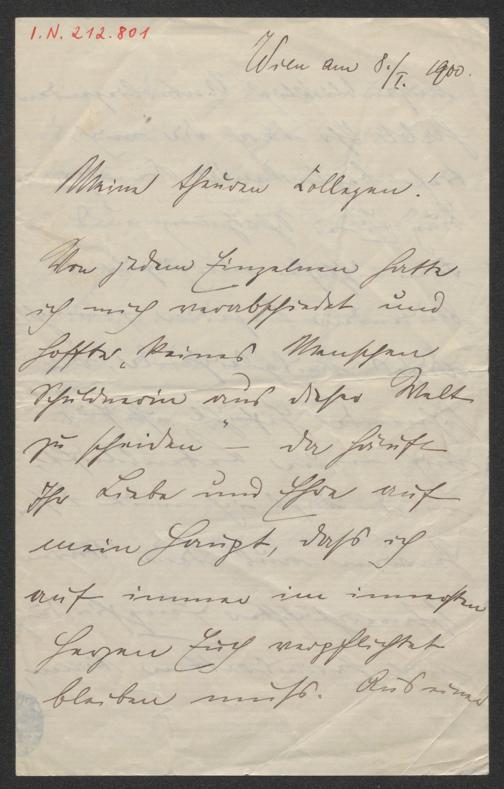 I.N. 212.801
Wien am 8./I. 1900.
Meine theuren Collegen!
Von jedem Einzelnen hatte
ich mich verabschiedet und
hoffte „keines Menschen
Schuldnerin aus dieser Welt
zu scheiden“ – da häuft
Ihr Liebe und Ehre auf
mein Haupt, dass ich
auf immer im innersten
Herzen Euch verpflichtet
bleiben muss. Aus einer